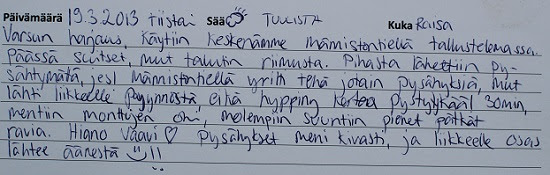 Päivämäärä 19.3.2013 tiistai Sää TUULISTA Kuka Raisa
Varsun harjaus. Käytiin keskenämme mämmistontiellä tallustelemassa.
Päässä suitset, mut talutin riimusta. Pihasta lähettiin py-
sähtymättä, jesl mämmistontiellä yritti tehä jotain pysähyksiä, mut
lähti liikkeelle pyynnöstä eikä hypping kertaa pystyyn. 30min,
mentiin monttujen ohi, molempiin suuntiin pienet pätkät
ravia. Hiano Vaavi ♡ Pysähykset meni kivasti, ja liikkeelle osas
lähtee äänestä